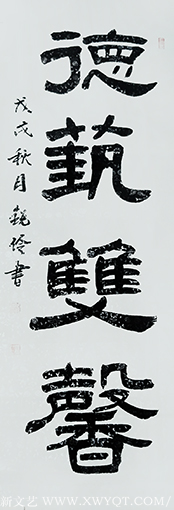 德蓺雙馨
戊戌秋月
書
新文艺 www.XWYQT.COM